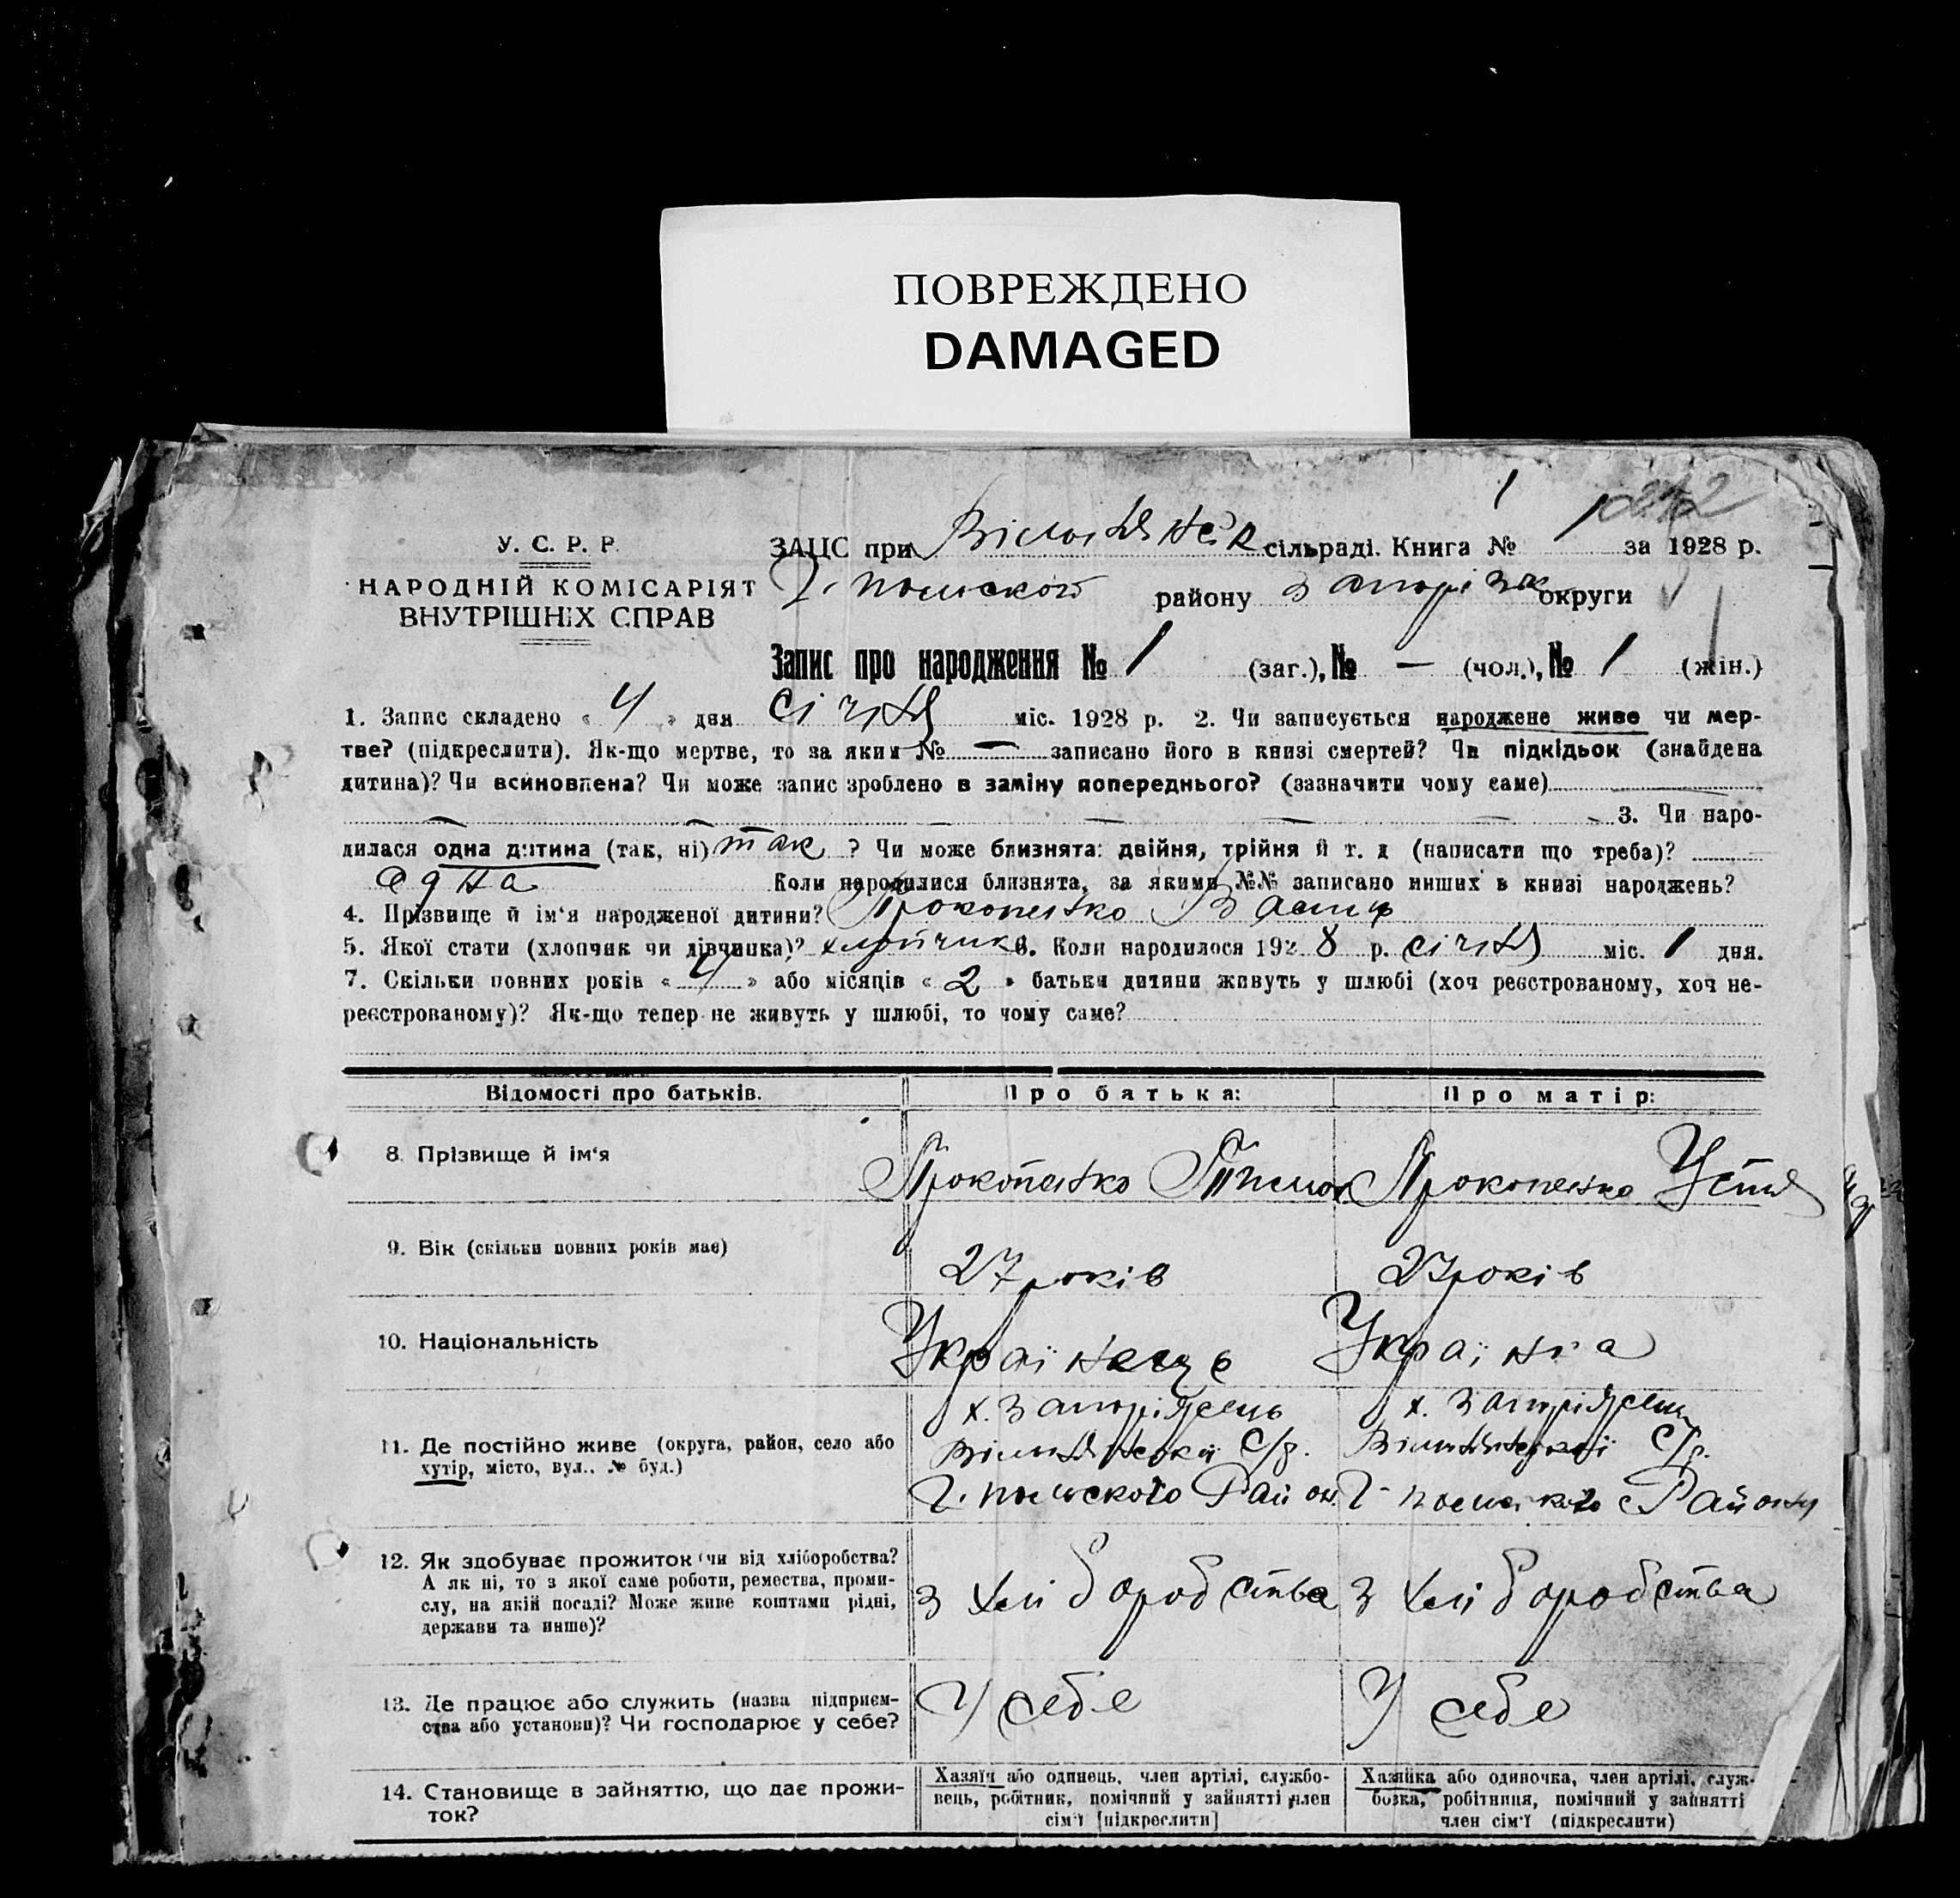 ПОВРЕЖДЕНО
DAMAGED
У. С. Р. Р.
НАРОДНІЙ КОМІСАРІЯТ
ВНУТРІШНІХ СПРАВ
ЗАЦС при сільраді. Книга № 1 за 1928 р.
району округи
Запис про народження № 1 (заг.), № — (чол.), № 1 (жін.)
1. Запис складено « 4 » дня січня міс. 1928 р. 2. Чи записується народжене живе чи мер-
тве? (підкреслити). Як-що мертве, то за яким № — записано його в книзі смертей? Чи підкідьок (знайдена
дитина)? Чи всиновлена? Чи може запис зроблено в заміну попереднього? (зазначити чому саме)
3. Чи наро-
дилася одна дитина (так, ні) так ? Чи може близнята: двійня, трійня й т. д (написати що треба)?
одна Коли народилися близнята, за якими №№ записано инших в книзі народжень?
4. Прізвище й ім'я народженої дитини? Прокопенко
5. Якої стати (хлопчик чи дівчинка)? хлопчик 6. Коли народилося 1928 р. січня міс. 1 дня.
7. Скільки повних років « 4 » або місяців « 2 » батьки дитини живуть у шлюбі (хоч реєстрованому, хоч не-
реєстрованому)? Як-що тепер не живуть у шлюбі, то чому саме?
Відомості про батьків. Про батька: Про матір:
8. Прізвище й ім'я Прокопенко Прокопенко
9. Вік (скільки повних років має) 27 років 27 років
10. Національність Українець Українка
11. Де постійно живе (округа, район, село або
хутір, місто, вул., № буд.)
12. Як здобуває прожиток (чи від хліборобства?
А як ні, то з якої саме роботи, ремества, проми-
слу, на якій посаді? Може живе коштами рідні,
держави та инше)?
з хліборобства з хліборобства
13. Де працює або служить (назва підприєм-
ства або установи)? Чи господарює у себе?
У себе У себе
14. Становище в зайняттю, що дає прожи-
ток?
Хазяїн або одинець, член артілі, службо-
вець, робітник, помічний у зайнятті член
сім'ї [підкреслити]
Хазяйка або одиночка, член артілі, служ-
бовка, робітниця, помічний у зайнятті
член сім'ї (підкреслити)